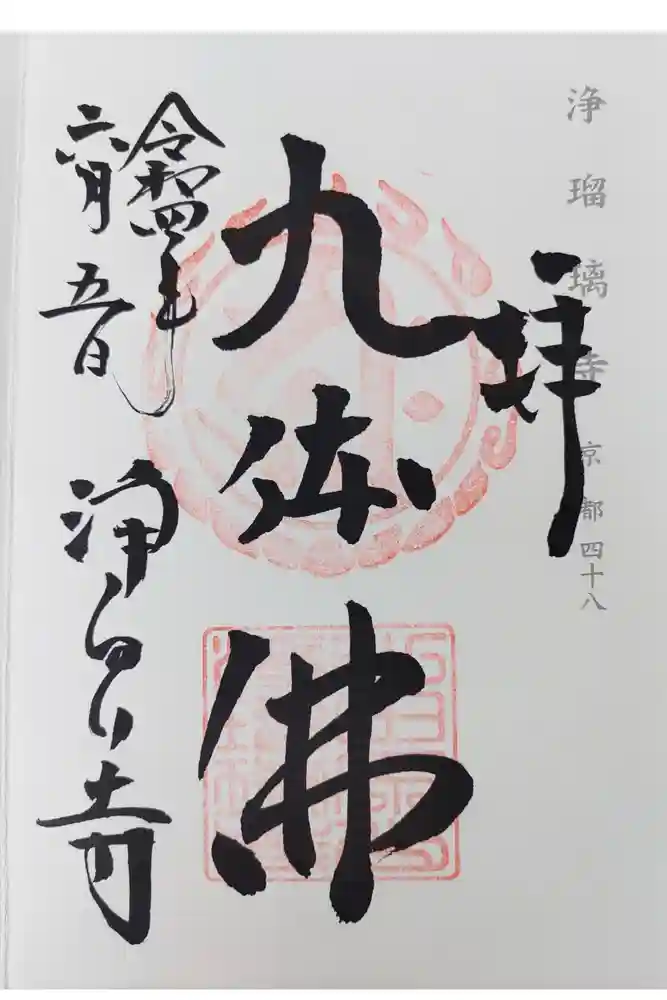 浄瑠璃寺 京都 四十八
拝
九体佛
令和四年
六月五日
浄るり寺